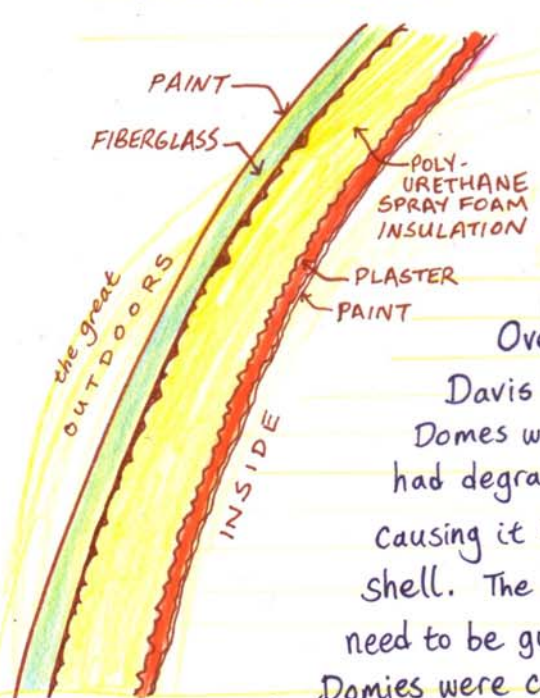 PAINT
FIBERGLASS
POLY-
URETHANE
SPRAY FOAM
INSULATION
PLASTER
PAINT
the great
OUTDOORS
INSIDE
Ove
Davis
Domes w
had degra
causing it
shell. The
need to be gu
Domies were c